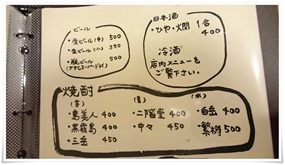 ビール
・生ビール(中) 500
・生ビール(小) 350
・瓶ビール 500
(アサヒスーパードライ)
日本酒
・ひや・燗 1合 400
冷酒
店内メニューを
ご覧下さい。
焼酎
(芋)
・島美人 400
・黒霧島 400
・三岳 450
(麦)
・二階堂 400
・中々 450
(米)
・白岳 400
・繁桝 500